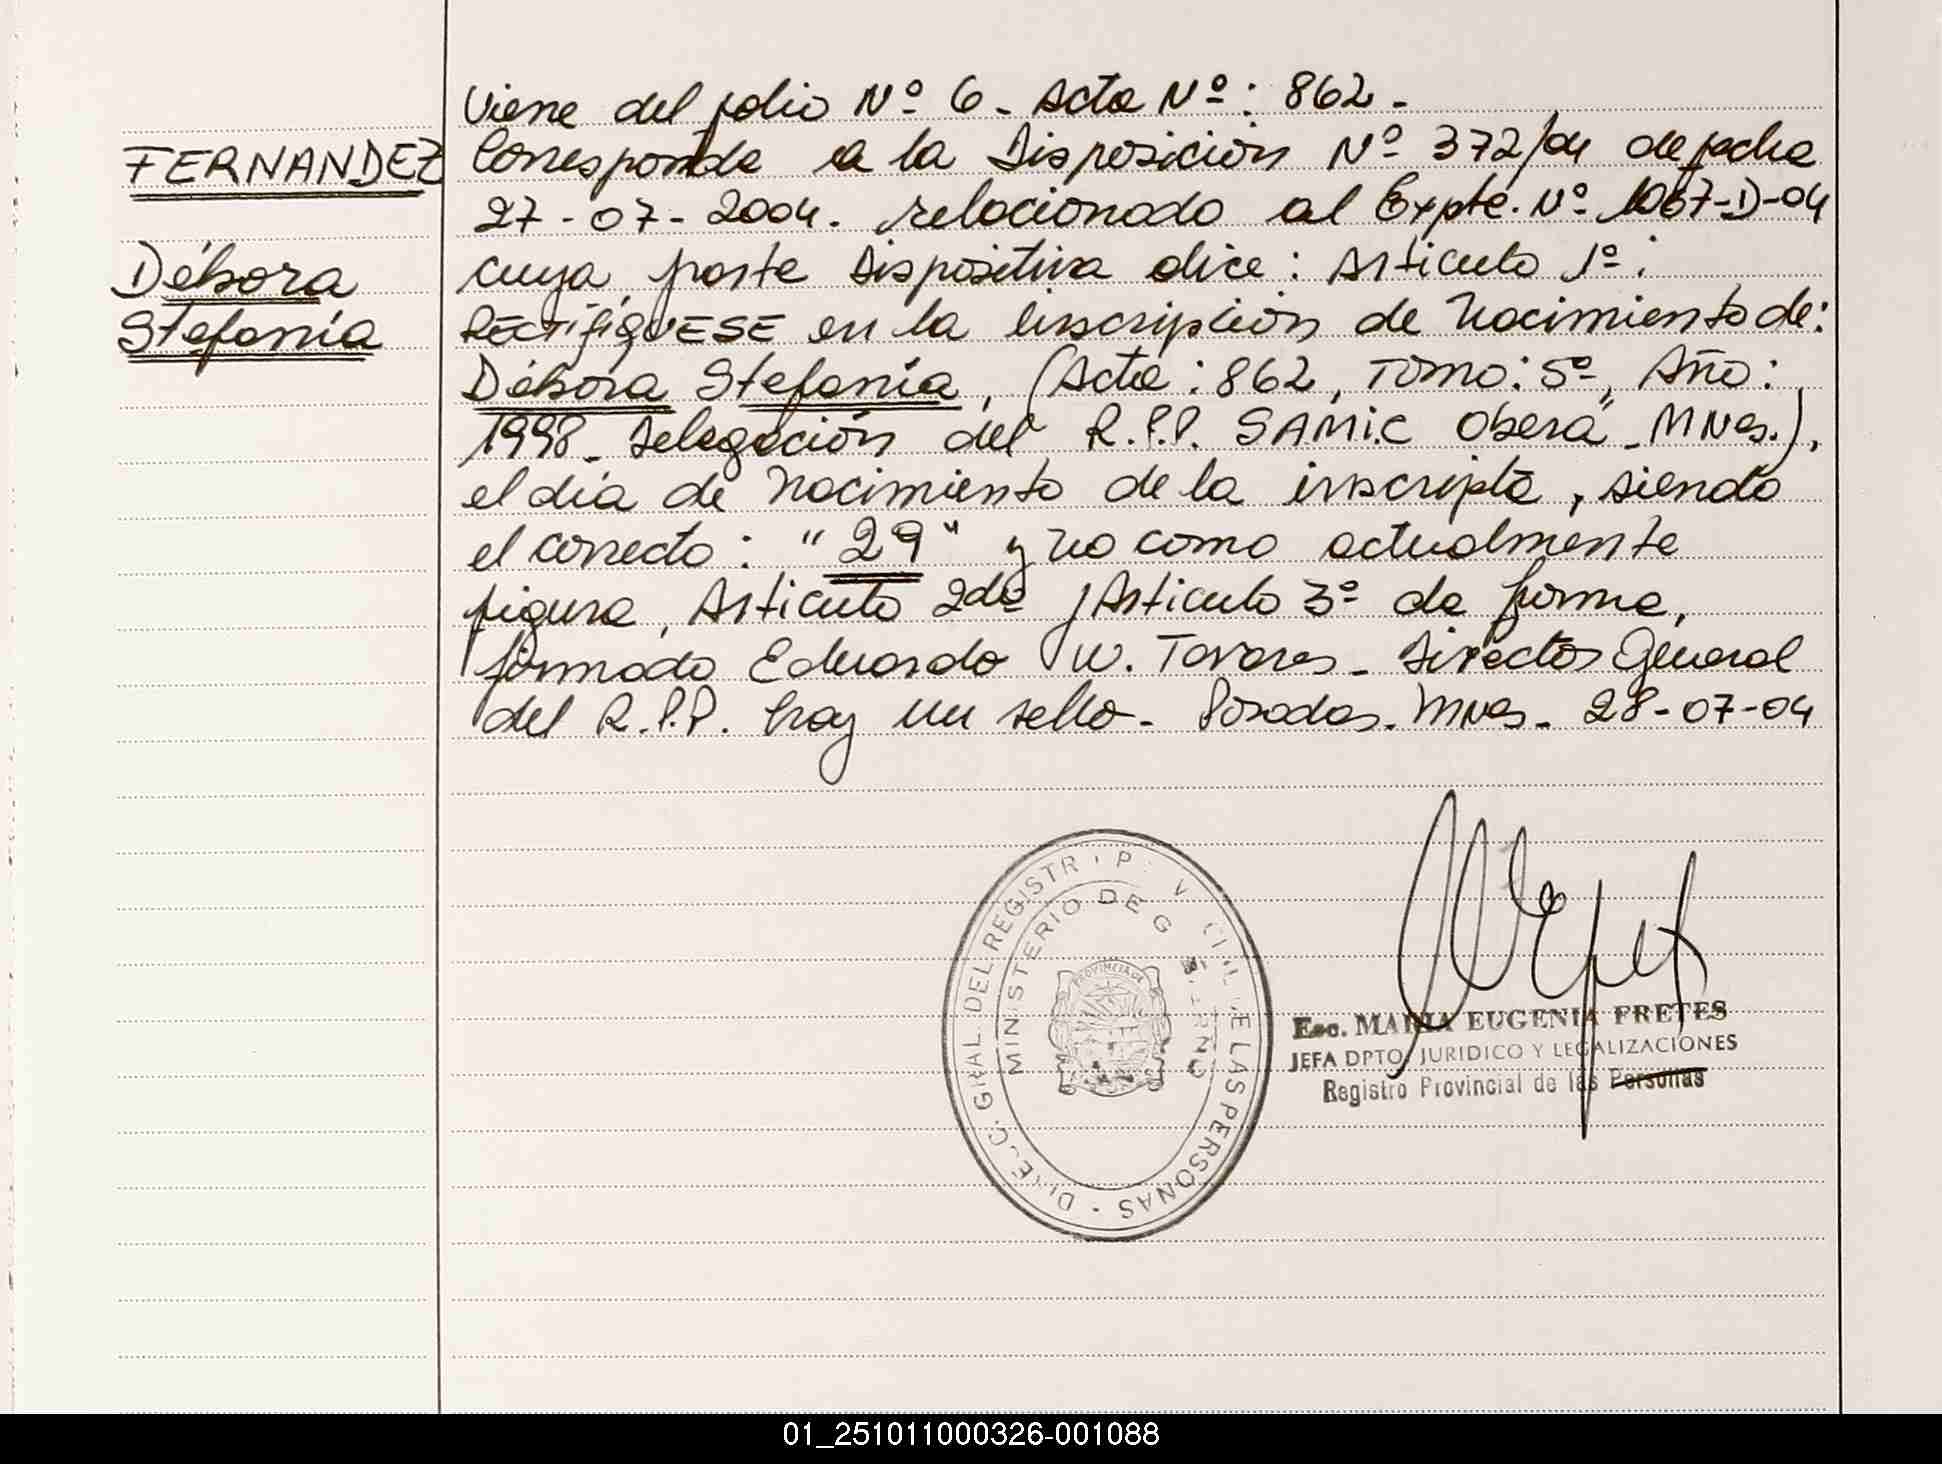 Viene del folio Nº 6 - Acta Nº: 862 -
FERNANDEZ
Corresponde a la Disposición Nº 372/04 de fecha
27-07-2004. relacionado al Expte. Nº 1067-D-04
Débora
cuya parte Dispositiva dice: Articulo 1º:
Stefanía
RECTIFIQUESE en la inscripción de Nacimiento de:
Débora Stefanía, (Acta: 862, Tomo: 5º, Año:
1998 - Delegación del R.P.P. SAMIC Oberá - MNes.),
el día de Nacimiento de la inscripta, siendo
el correcto: "29" y no como actualmente
figura, Articulo 2do y Articulo 3º de forma,
firmado Eduardo W. Tavares - Director General
del R.P.P. hay un sello - Posadas - MNes - 28-07-04
DIREC. GRAL. DEL REGISTR P V CIAL DE LAS PERSONAS
MINISTERIO DE GOBIERNO
PROVINCIA DE
Esc. MARIA EUGENIA FRETES
JEFA DPTO. JURIDICO Y LEGALIZACIONES
Registro Provincial de las Personas
01_251011000326-001088